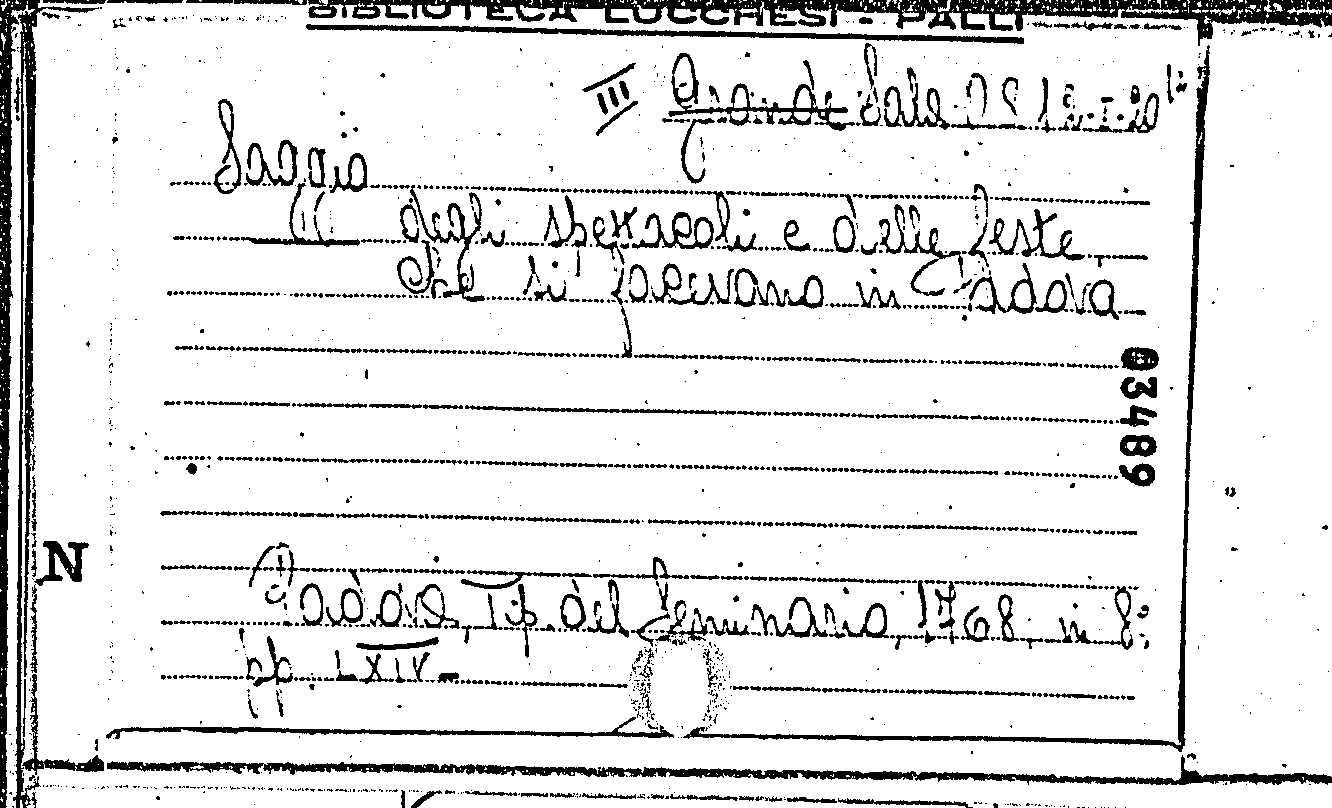 BIBLIOTECA LUCCHESI - PALLI
III Grande Sala 18-I-20
Saggio
degli spettacoli e delle feste,
che si facevano in Padova
03489
N
Padova, Tip. del Seminario, 1768, in 8:
pp. LXIV-